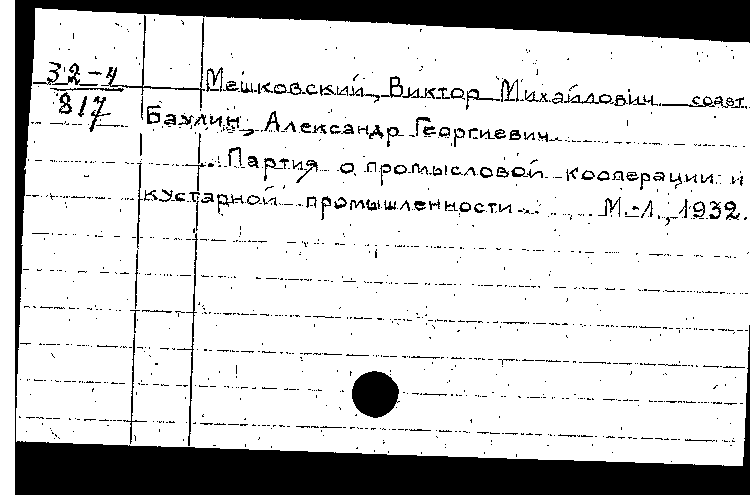 32-4
817
Мешковский, Виктор Михайлович сост.
Бахлин, Александр Георгиевич
... Партия о промысловой кооперации и
кустарной промышленности... М.-Л., 1932.